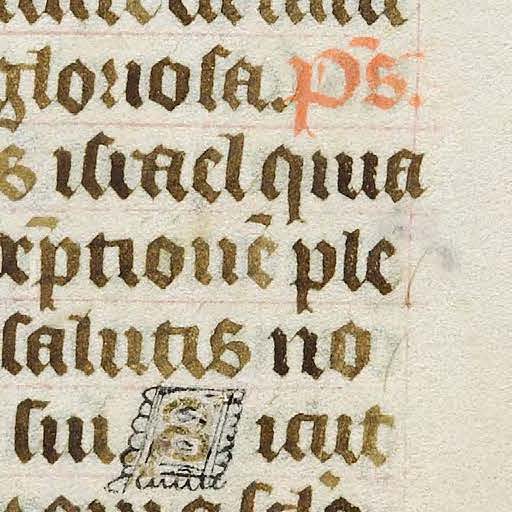 gloriosa. p̄s.
s israel quia
xp̄tionē ple
salutis no
sui Sicut